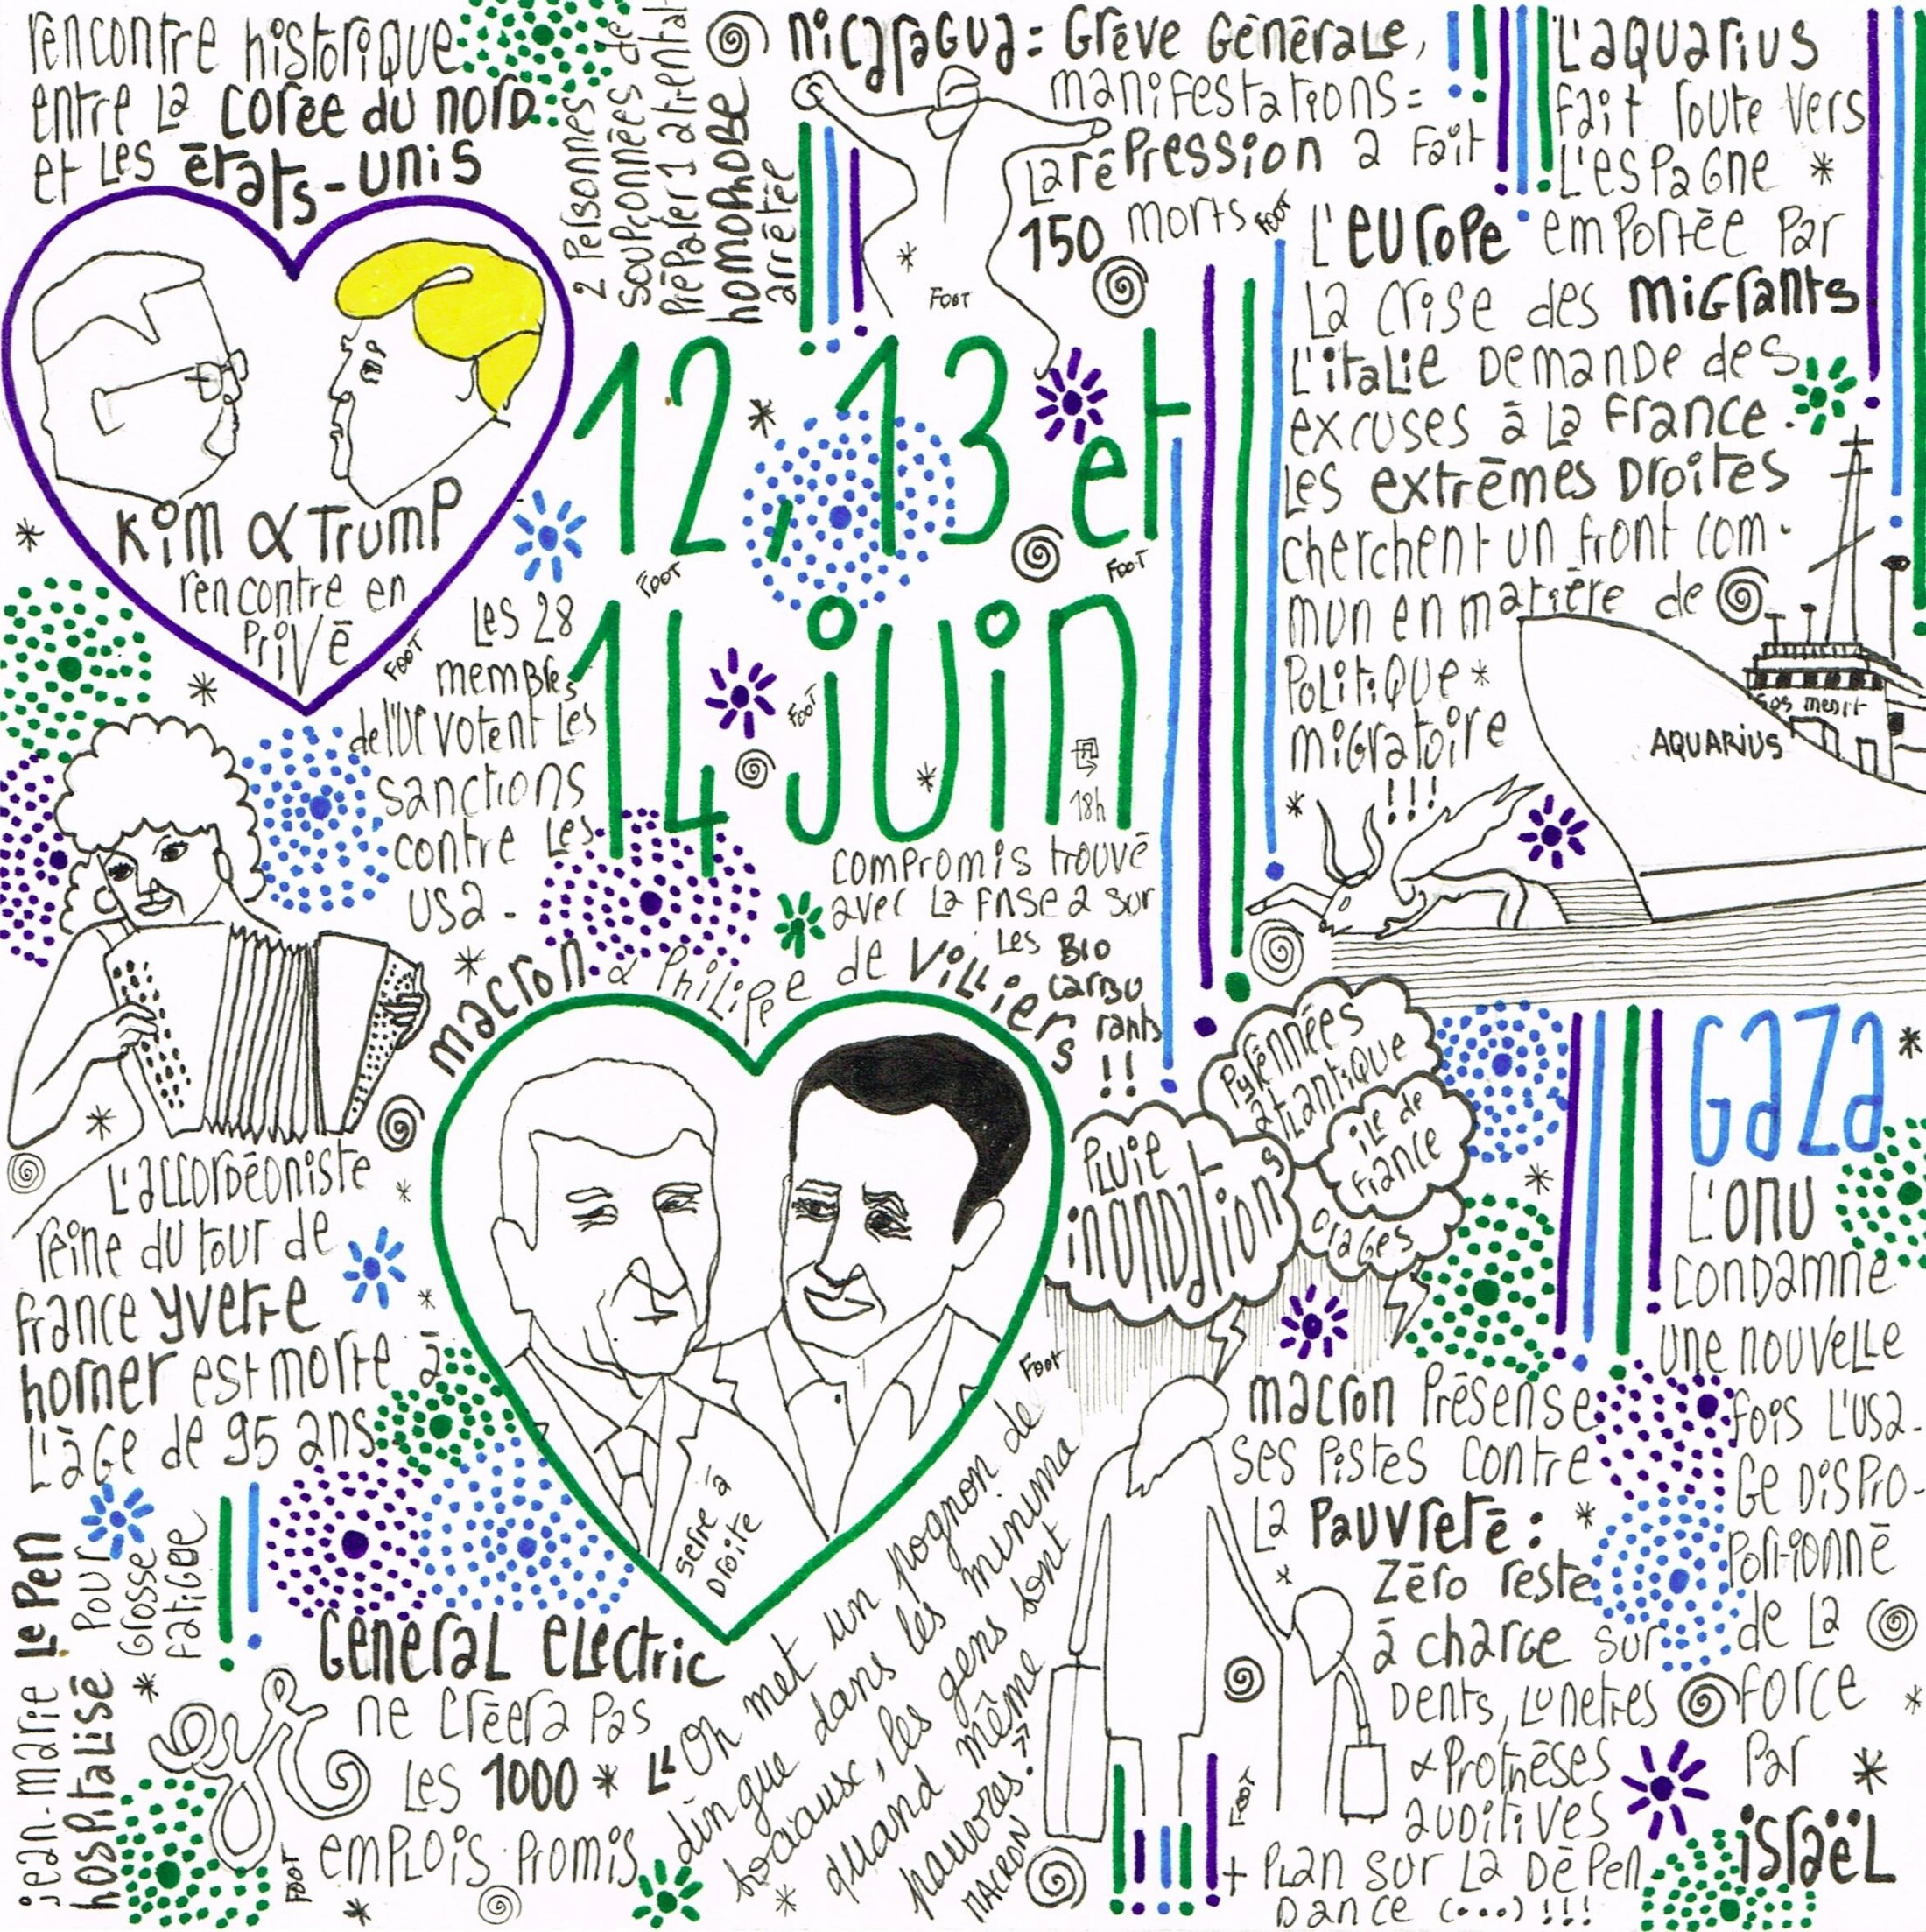 rencontre historique
entre la corée du nord
et les états-unis
Kim & Trump
rencontre en
privé
FOOT
2 personnes
soupçonnées de
préparer 1 attentat
homophobe
arrêtée
nicaragua = Grève Générale,
manifestations =
la répression a fait
150 morts
FOOT
FOOT
L'aquarius
fait route vers
l'espagne
L'europe emportée par
la crise des migrants
L'italie demande des
excuses à la france.
Les extrêmes droites
cherchent un front com-
mun en matière de
politique
migratoire
!!!
AQUARIUS
12, 13 et
14 juin
FOOT
FOOT
FOOT
18h
Les 28
membres
de l'UE votent les
sanctions
contre les
USA.
compromis trouvé
avec la fnsea sur
les bio
carbu
rants
!!
macron & Philippe de Villiers
serre à
droite
FOOT
L'accordéoniste
reine du tour de
france yvette
horner est morte à
l'âge de 95 ans
Pyrénnées
atlantique
île de
france
Pluie
inondations
orages
GAZA
L'onu
condamne
une nouvelle
fois l'usa-
ge dispro-
portionné
de la
force
par
israël
macron présense
ses pistes contre
la pauvreté :
Zéro reste
à charge sur
dents, lunettes
& prothèses
auditives
+ plan sur la dépen
dance (...) !!!
FOOT
jean-marie Le Pen
hospitalisé pour
grosse
fatigue
FOOT
General electric
ne créera pas
les 1000
emplois promis
"On met un pognon de
dingue dans les minima
sociaux, les gens sont
quand même
pauvres."
MACRON